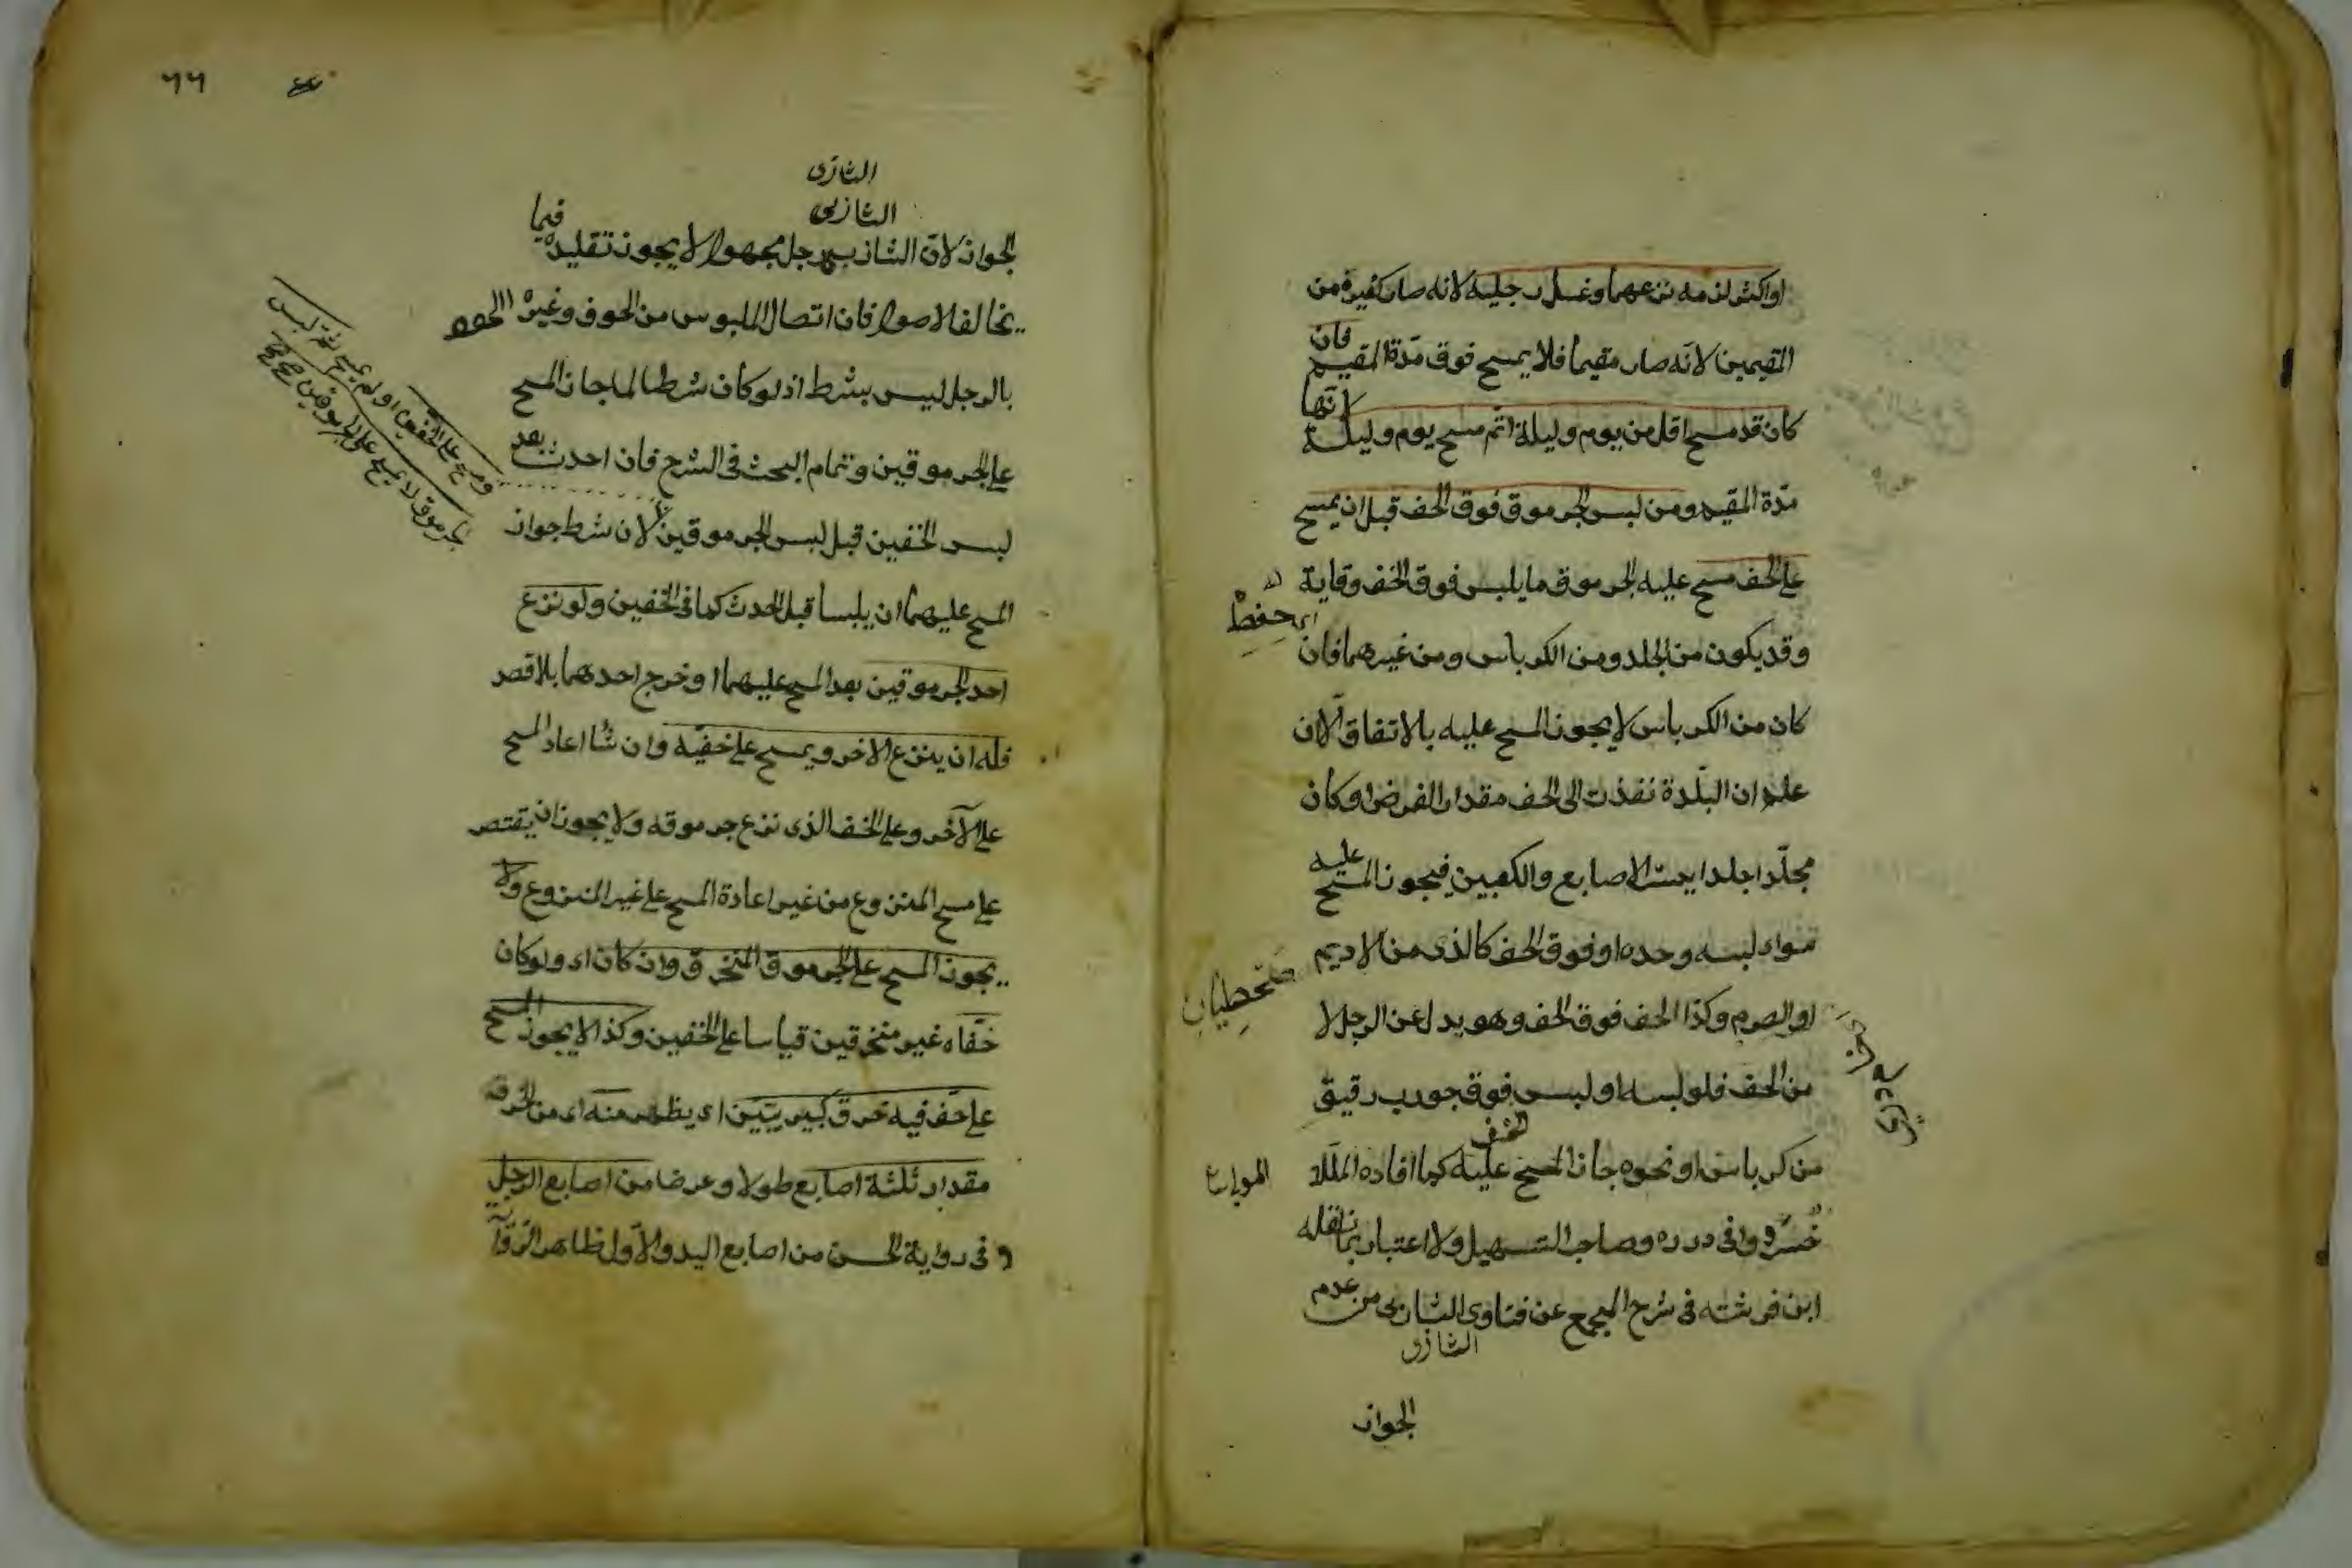 او اكثر لزمه نزعهما وغسل رجليه لانه صار كغيره من
المقيمين لانه صار مقيما فلا يمسح فوق مدة المقيم فان
كان قد مسح اقل من يوم وليلة اتم مسح يوم وليلة لانها
مدة المقيم ومن لبس الجرموق فوق الخف قبل ان يمسح
على الخف مسح عليه الجرموق ما يلبس فوق الخف وقاية له
اى حفظ
وقد يكون من الجلد ومن الكرباس ومن غيرهما فان
كان من الكرباس لا يجوز المسح عليه بالاتفاق الا ان
علم ان البلة نفذت الى الخف مقدار الفرض او كان
مجلدا جلدا يستر الاصابع والكعبين فيجوز المسح عليه
سواء لبسه وحده او فوق الخف كالذى من الاديم
او الصرم وكذا الخف فوق الخف وهو بدل عن الرجل لا
من الخف فلو لبسه او لبس فوق جورب رقيق
من كرباس او نحوه جاز المسح عليه كما افاده الملا
الخف
خسرو فى درره وصاحب التسهيل ولا اعتبار بما نقله
ابن فرشته فى شرح المجمع عن فتاوى الشاذى من عدم
الشاذى
الجواز
٦٦
الشاذى
الشاذى
الجواز لان الشاذى رجل مجهول لا يجوز تقليده فيما
يخالف الاصول فان اتصال الملبوس من الخف وغيره
بالرجل ليس بشرط اذ لو كان شرطا لما جاز المسح
على الجرموقين وتمام البحث فى الشرح فان احدث بعد
لبس الخفين قبل لبس الجرموقين لا لان شرط جواز
المسح عليهما ان يلبسا قبل الحدث كما فى الخفين ولو نزع
احد الجرموقين بعد المسح عليهما او خرج احدهما بلا قصد
فله ان ينزع الاخر ويمسح على خفيه وان شا اعاد المسح
على الآخر وعلى الخف الذى نزع جرموقه ولا يجوز ان يقتصر
على مسح المنزوع من غير اعادة المسح على غير المنزوع ولا
يجوز المسح على الجرموق المنخرق وان كان اى ولو كان
خفاه غير منخرقين قياسا على الخفين وكذا لا يجوز المسح
على خف فيه خرق كبير يتبين اى يظهر منه اى من الخرق
مقدار ثلثة اصابع طولا وعرضا من اصابع الرجل
وفى رواية الحسن من اصابع اليد والاول ظاهر الرواية
ومسح على الخفين او لم يمسح ثم لبس
الجرموق لا يمسح على الجرموقين